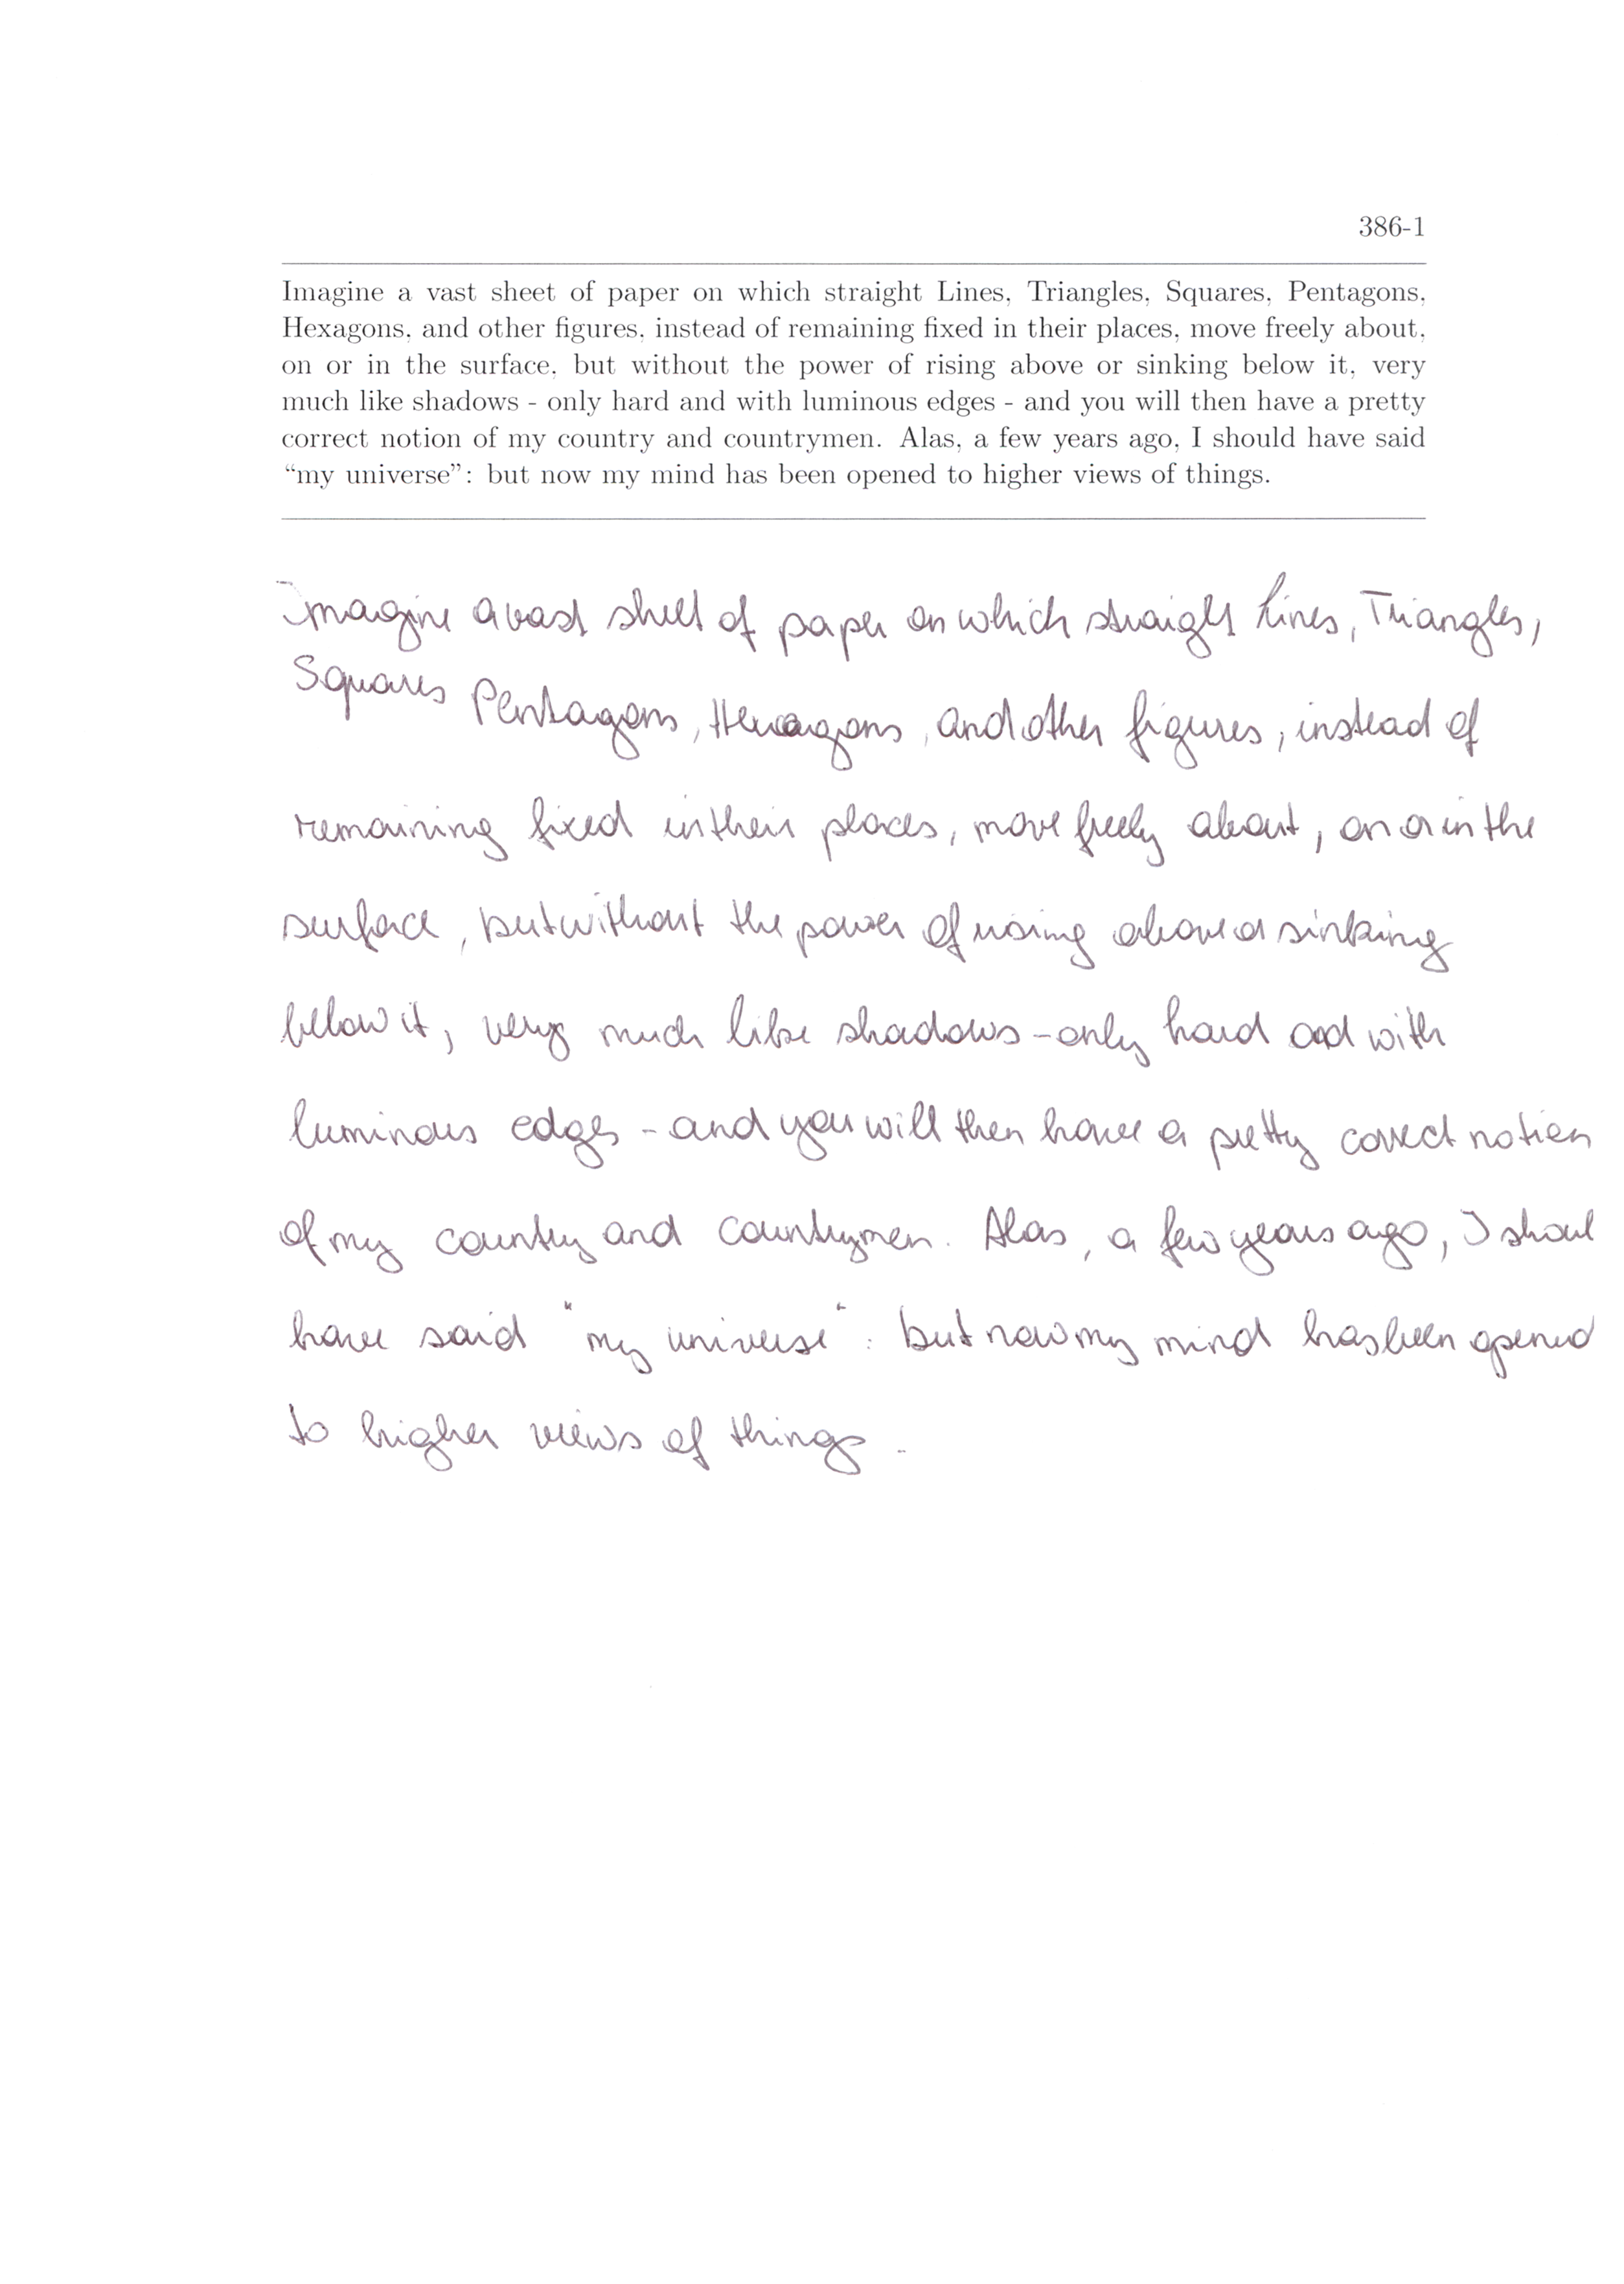 386-1
Imagine a vast sheet of paper on which straight Lines, Triangles, Squares, Pentagons,
Hexagons, and other figures, instead of remaining fixed in their places, move freely about,
on or in the surface, but without the power of rising above or sinking below it, very
much like shadows - only hard and with luminous edges - and you will then have a pretty
correct notion of my country and countrymen. Alas, a few years ago, I should have said
“my universe”: but now my mind has been opened to higher views of things.
Imagine a vast sheet of paper on which straight Lines, Triangles,
Squares Pentagons, Hexagons, and other figures, instead of
remaining fixed in their places, move freely about, on or in the
surface, but without the power of rising above or sinking
below it, very much like shadows - only hard and with
luminous edges - and you will then have a pretty correct notion
of my country and countrymen. Alas, a few years ago, I shoul
have said "my universe": but now my mind has been opened
to higher views of things.